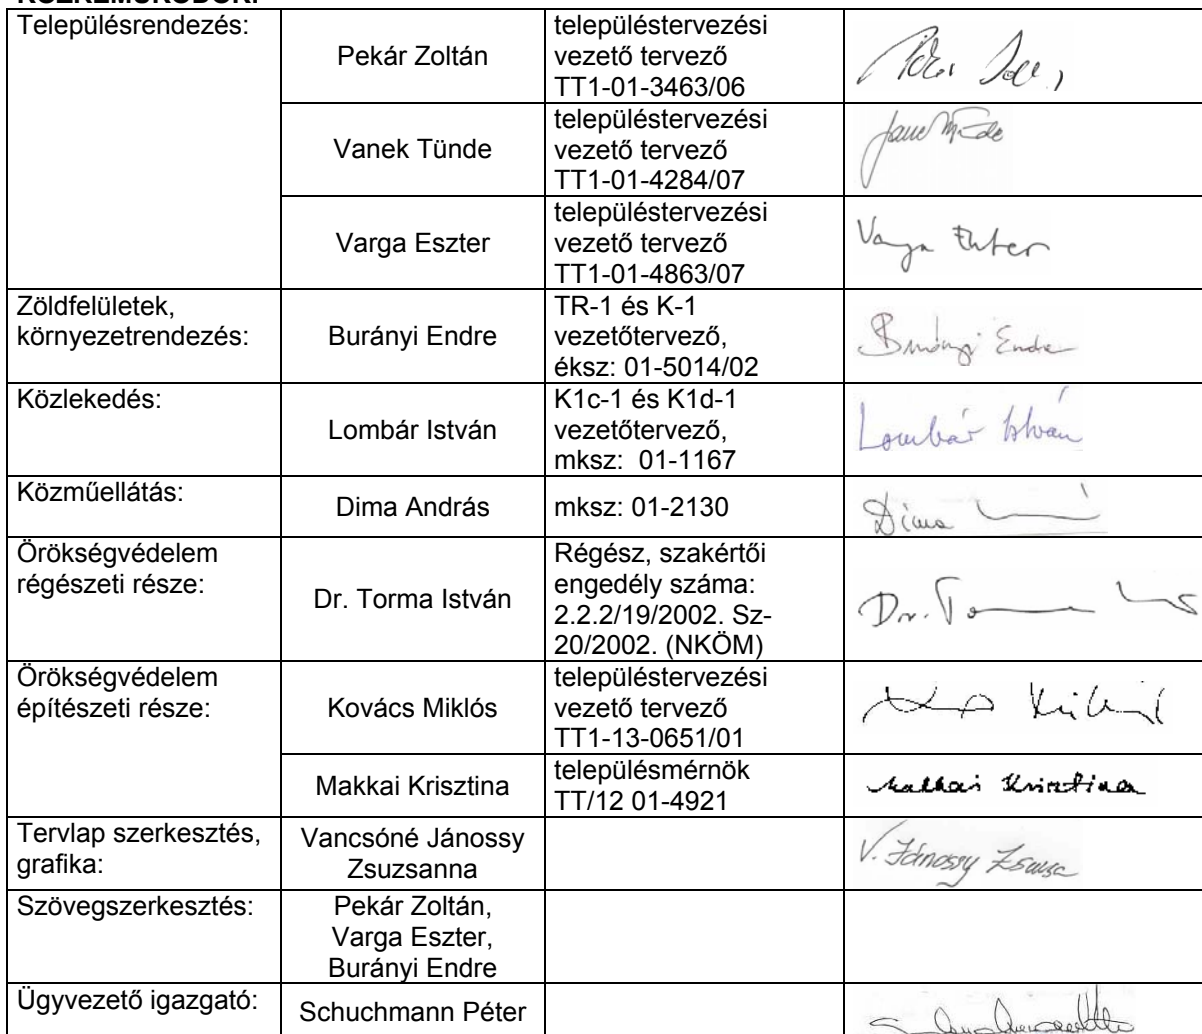 KÖZREMŰKÖDŐK:
Településrendezés:
Pekár Zoltán
településtervezési
vezető tervező
TT1-01-3463/06
Vanek Tünde
településtervezési
vezető tervező
TT1-01-4284/07
Varga Eszter
településtervezési
vezető tervező
TT1-01-4863/07
Varga Eszter
Zöldfelületek,
környezetrendezés:
Burányi Endre
TR-1 és K-1
vezetőtervező,
éksz: 01-5014/02
Burányi Endre
Közlekedés:
Lombár István
K1c-1 és K1d-1
vezetőtervező,
mksz: 01-1167
Lombár István
Közműellátás:
Dima András
mksz: 01-2130
Dima
Örökségvédelem
régészeti része:
Dr. Torma István
Régész, szakértői
engedély száma:
2.2.2/19/2002. Sz-
20/2002. (NKÖM)
Dr. Torma
Örökségvédelem
építészeti része:
Kovács Miklós
településtervezési
vezető tervező
TT1-13-0651/01
Makkai Krisztina
településmérnök
TT/12 01-4921
Makkai Krisztina
Tervlap szerkesztés,
grafika:
Vancsóné Jánossy
Zsuzsanna
V. Jánossy Zsuzsa
Szövegszerkesztés:
Pekár Zoltán,
Varga Eszter,
Burányi Endre
Ügyvezető igazgató:
Schuchmann Péter